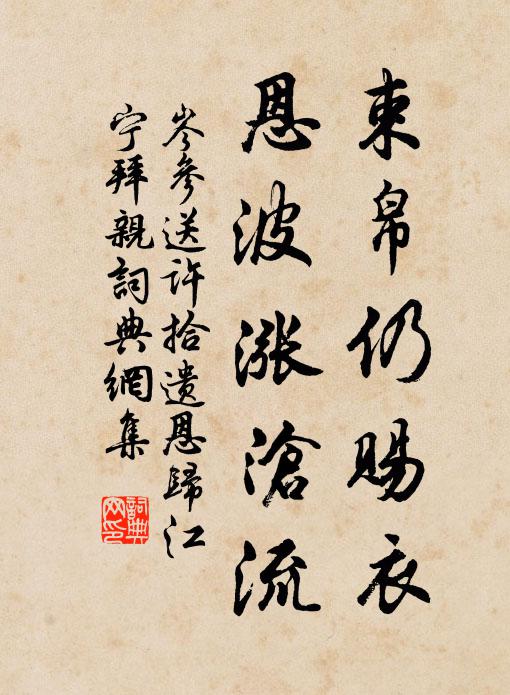 束帛仍賜衣
恩波漲滄流
岑參送許拾遺恩歸江
宁拜親詞典網集
詞典
网印